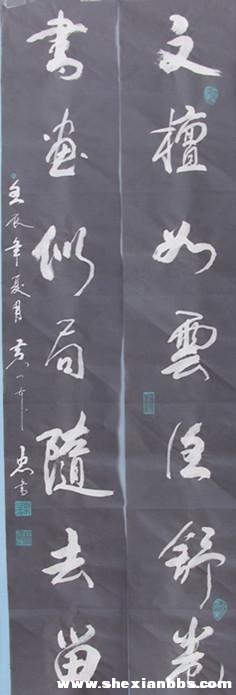 文檀如雲任舒卷
書畫似局隨去留
壬辰年夏月
忠書
www.shexianbbs.com